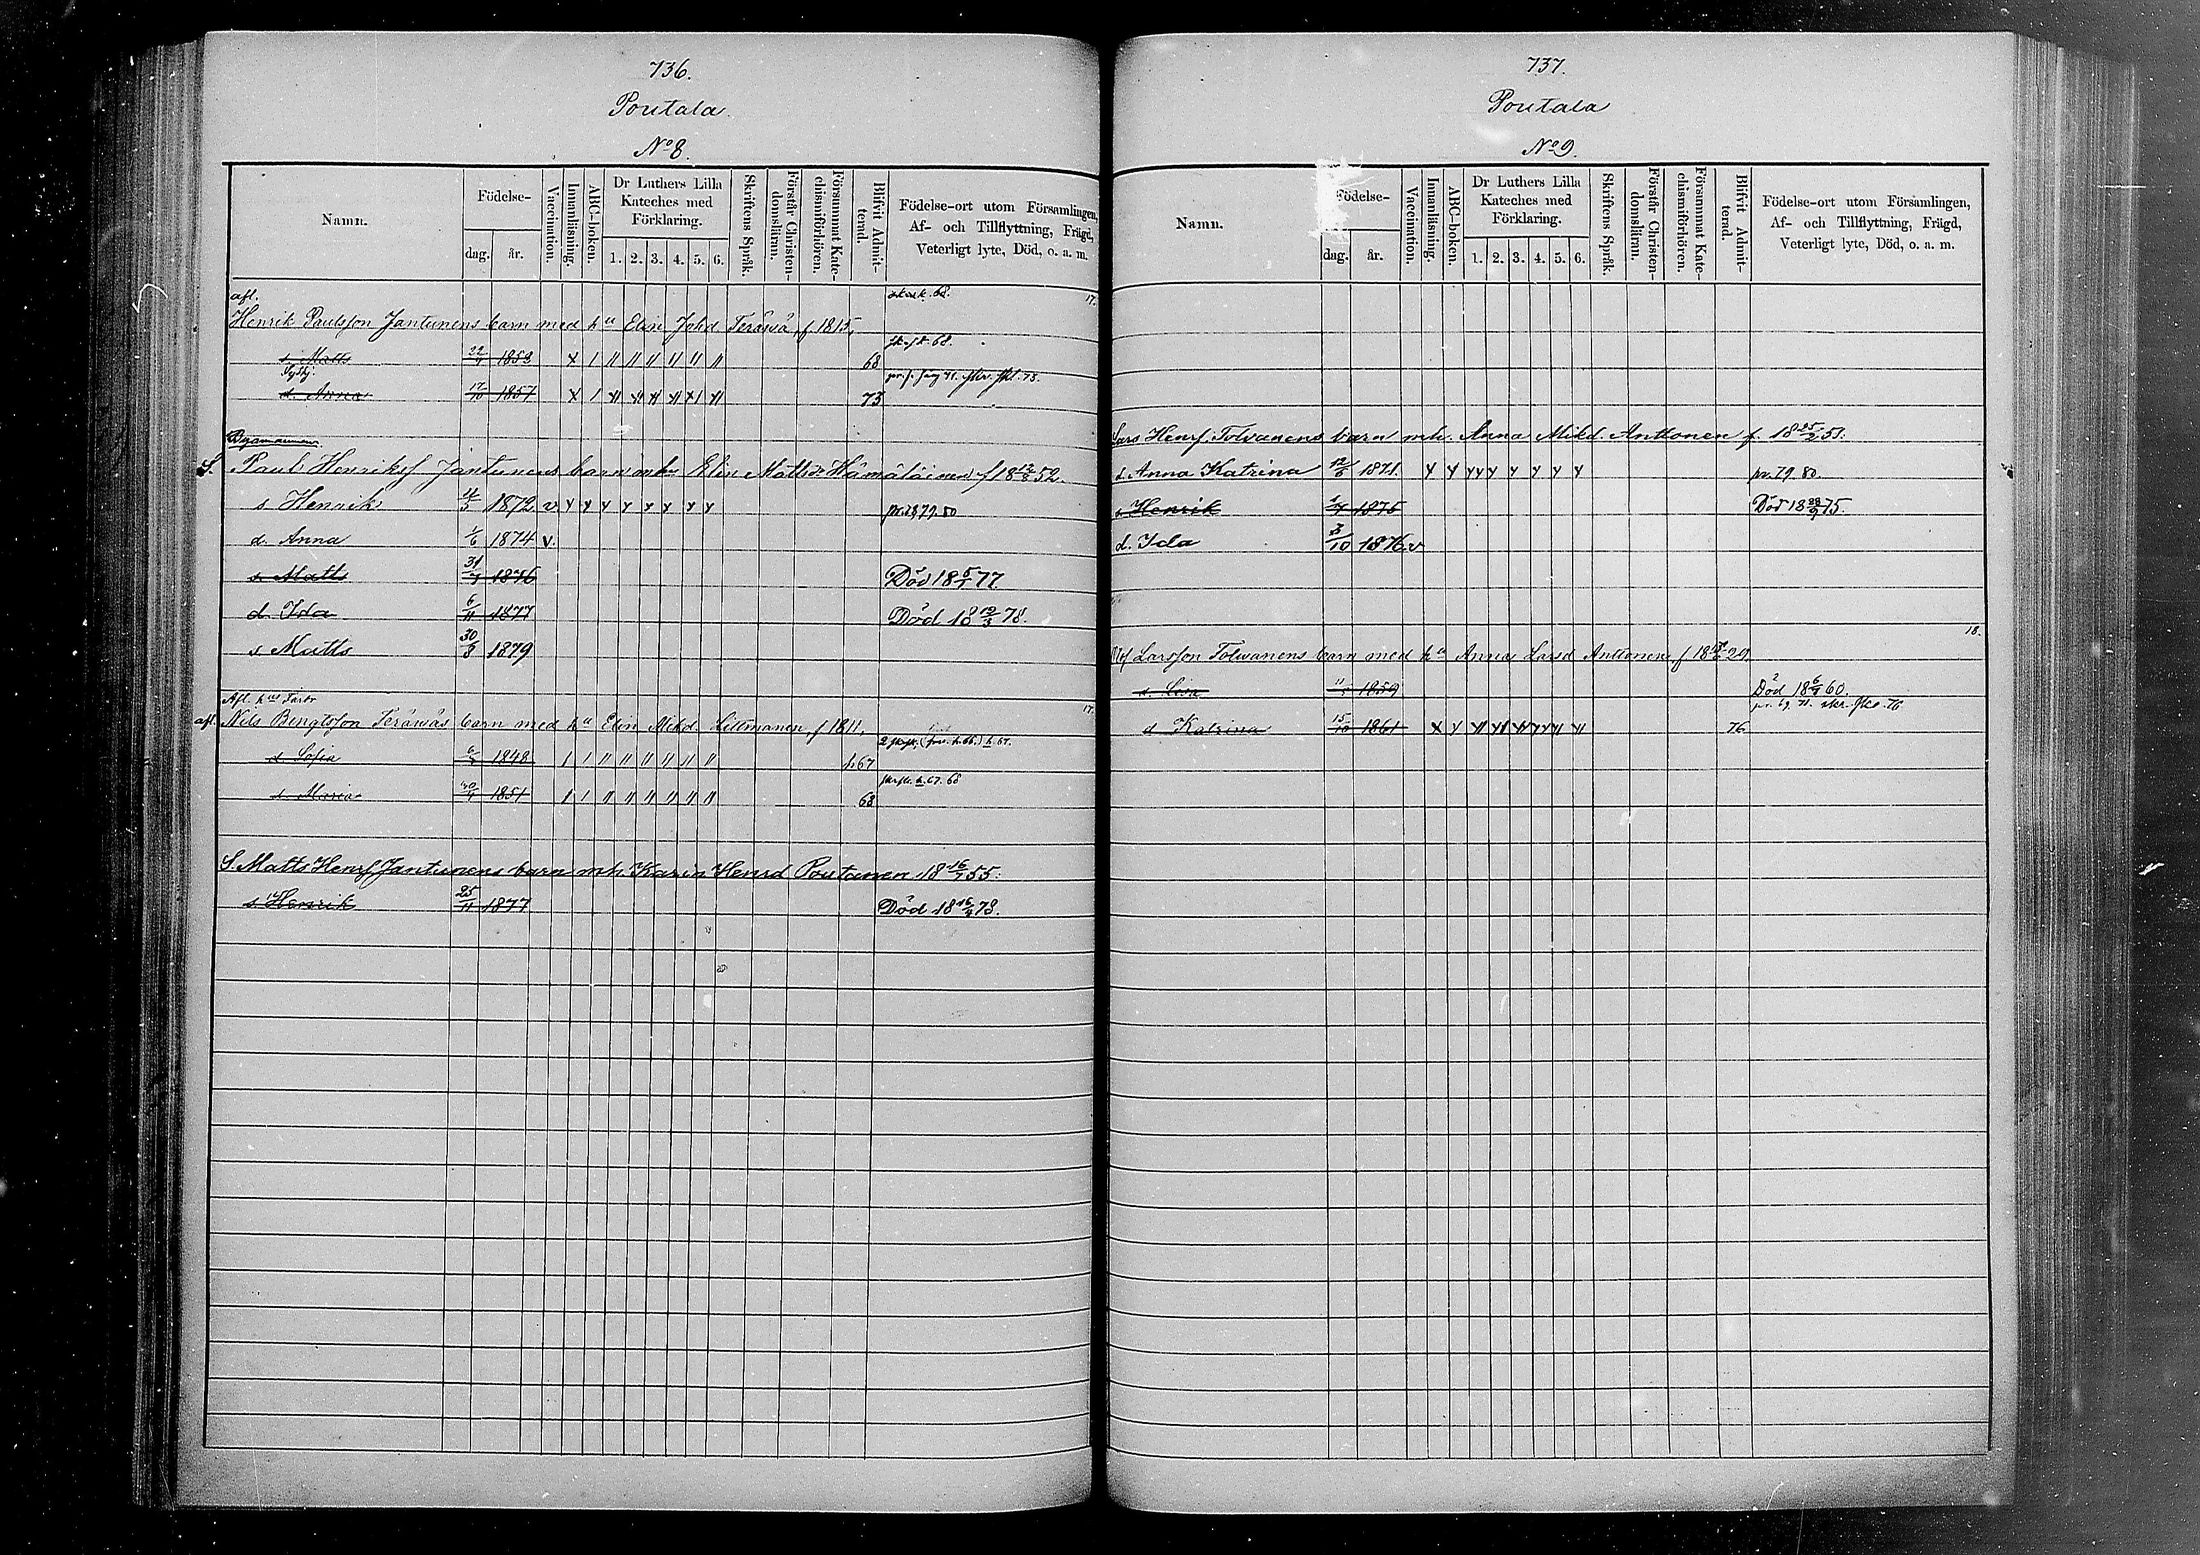 736.
Poutala
No 8.
Namn.
Födelse-
dag.
år.
Vaccination.
Innanläsning.
ABC-boken.
Dr Luthers Lilla Kateches med Förklaring.
1. 2. 3. 4. 5. 6.
Skriftens Språk.
Förstår Christendomsläran.
Försummat Katechismiförhören.
Blifvit Admitterad.
Födelse-ort utom Församlingen, Af- och Tillflyttning, Frägd, Veterligt lyte, Död, o. a. m.
afl. 68. 17.
Henrik Paulsson Jantunens barn med hu Elin Johd Teräwä, f 1815,
s. Matts 1853 x 1 11 11 11 11 11 11 68 68.
d. Anna 17/10 1857 x 1 73
S. Paul Henriksf Jantunens barn mhu Elin Mattsdr Hämäläinen f 18 52.
s Henrik 1872 v y y y y y y y y 79.80
d. Anna 1/6 1874 v.
s. Matts 31 1876 Död 18 5/1 77
d. Ida 6/11 1877 Död 18 12/3 78.
s Matts 30/3 1879
afl. Nils Bengtsson Teräwäs barn med hu Elin Mikd Littmanen, f 1811, 17.
d Sofia 1848 1 1 11 11 11 11 11 11 h67
d. Maria 1851 1 1 11 11 11 11 11 11 68 h. 67. 68
S Matts Henrf Jantunens barn mh Karin Henrd Poutanen 18 16/7 55.
s Henrik 25/11 1877 Död 18 78.
737.
Poutala
No 9.
Namn.
Födelse-
dag.
år.
Vaccination.
Innanläsning.
ABC-boken.
Dr Luthers Lilla Kateches med Förklaring.
1. 2. 3. 4. 5. 6.
Skriftens Språk.
Förstår Christendomsläran.
Försummat Katechismiförhören.
Blifvit Admitterad.
Födelse-ort utom Församlingen, Af- och Tillflyttning, Frägd, Veterligt lyte, Död, o. a. m.
Lars Henrf. Tolvanens barn mh. Anna Mikd. Anttonen f. 18 25/2 51.
d. Anna Katrina 1871. y y y y y y y y y pr. 79. 80.
s Henrik 1875 Död 18 75.
d. Ida 3/10 1876 v
18.
Olof Larsson Tolwanens barn med hu Anna Larsd Anttonen f 18 29
d. Lisa 1859 Död 18 60.
d Katrina 15/10 1861 76 pr. 69. 71. 76